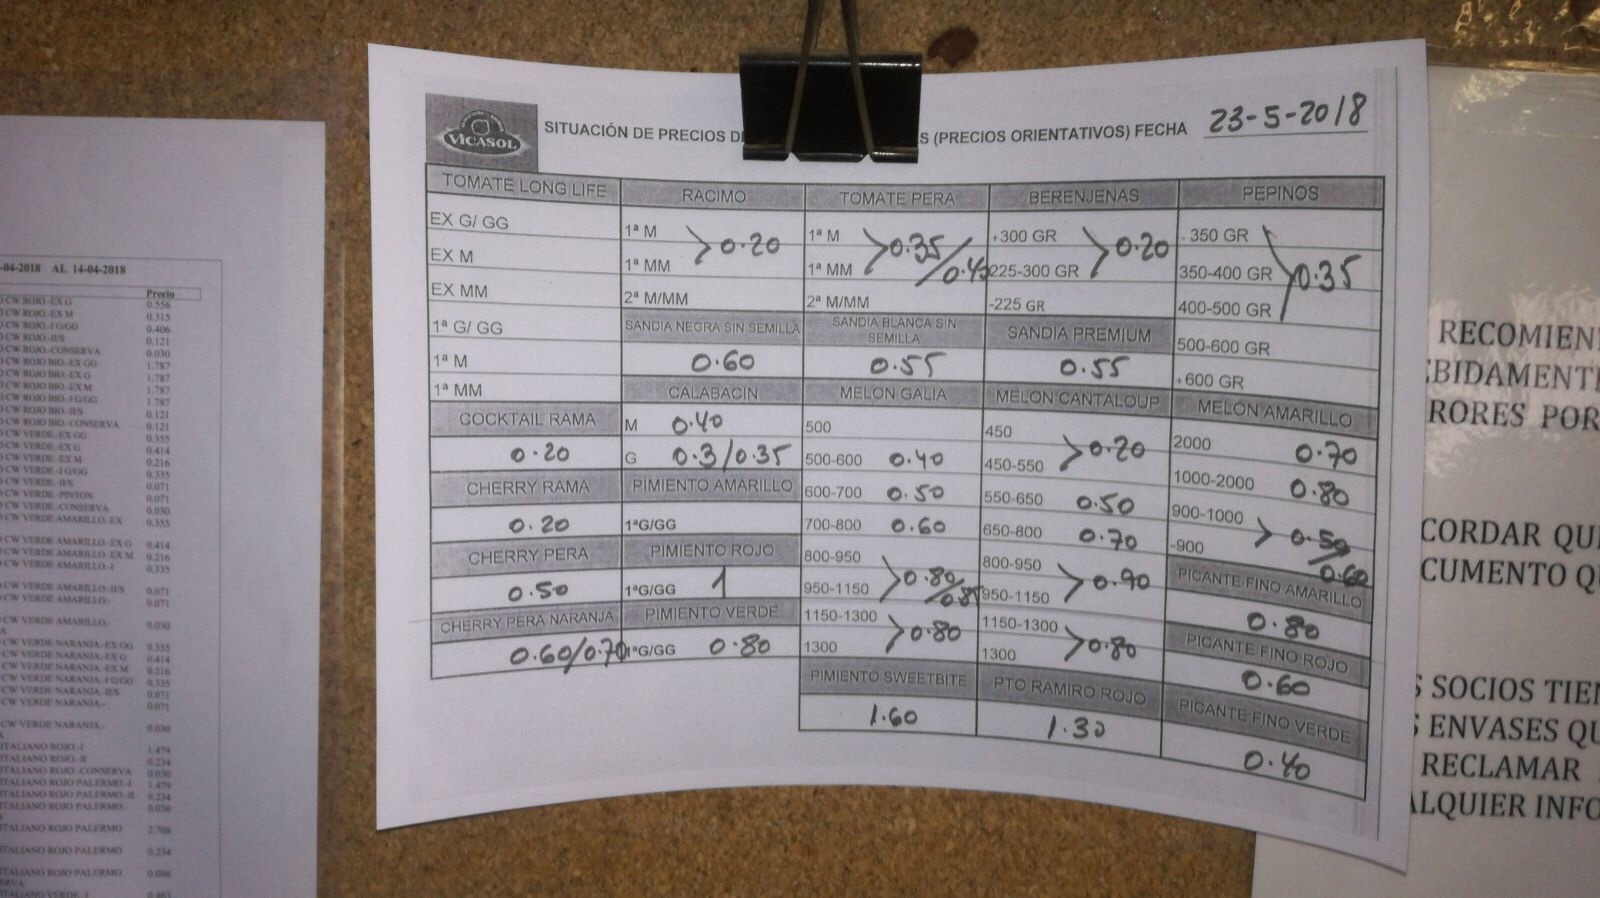 VICASOL
SITUACIÓN DE PRECIOS
S (PRECIOS ORIENTATIVOS) FECHA 23-5-2018
TOMATE LONG LIFE
EX G/ GG
EX M
EX MM
1ª G/ GG
1ª M
1ª MM
COCKTAIL RAMA
0.20
CHERRY RAMA
0.20
CHERRY PERA
0.50
CHERRY PERA NARANJA
0.60/0.70
RACIMO
1ª M
1ª MM
> 0.20
2ª M/MM
SANDIA NEGRA SIN SEMILLA
0.60
CALABACIN
M 0.40
G 0.3/0.35
PIMIENTO AMARILLO
1ªG/GG
PIMIENTO ROJO
1ªG/GG 1
PIMIENTO VERDE
1ªG/GG 0.80
TOMATE PERA
1ª M
1ª MM
> 0.35/0.45
2ª M/MM
SANDIA BLANCA SIN
SEMILLA
0.55
MELON GALIA
500
500-600 0.40
600-700 0.50
700-800 0.60
800-950
950-1150
> 0.80/0.85
1150-1300
1300
> 0.80
PIMIENTO SWEETBITE
1.60
BERENJENAS
+300 GR
225-300 GR
> 0.20
-225 GR
SANDIA PREMIUM
0.55
MELON CANTALOUP
450
450-550
> 0.20
550-650 0.50
650-800 0.70
800-950
950-1150
> 0.90
1150-1300
1300
> 0.80
PTO RAMIRO ROJO
1.30
PEPINOS
- 350 GR
350-400 GR
400-500 GR
> 0.35
500-600 GR
+600 GR
MELON AMARILLO
2000 0.70
1000-2000 0.80
900-1000
-900
> 0.50/0.60
PICANTE FINO AMARILLO
0.80
PICANTE FINO ROJO
0.60
PICANTE FINO VERDE
0.40
-04-2018 AL 14-04-2018
Precio
CW ROJO.-EX G 0.556
CW ROJO.-EX M 0.315
CW ROJO.-I G/GG 0.406
CW ROJO.-II/S 0.121
CW ROJO.-CONSERVA 0.030
CW ROJO BIO.-EX GG 1.787
CW ROJO BIO.-EX G 1.787
CW ROJO BIO.-EX M 1.787
CW ROJO BIO.-I G/GG 1.787
CW ROJO BIO.-II/S 0.121
ROJO BIO.-CONSERVA 0.121
CW VERDE.-EX GG 0.355
CW VERDE.-EX G 0.414
CW VERDE.-EX M 0.216
CW VERDE.-I G/GG 0.335
CW VERDE.-II/S 0.071
CW VERDE.-PINTON 0.071
CW VERDE.-CONSERVA 0.030
CW VERDE AMARILLO.-EX 0.355
CW VERDE AMARILLO.-EX G 0.414
CW VERDE AMARILLO.-EX M 0.216
CW VERDE AMARILLO.-I 0.335
CW VERDE AMARILLO.-II/S 0.071
CW VERDE AMARILLO.- 0.071
CW VERDE AMARILLO.- 0.030
CW VERDE NARANJA.-EX GG 0.355
CW VERDE NARANJA.-EX G 0.414
CW VERDE NARANJA.-EX M 0.216
CW VERDE NARANJA.-I G/GG 0.335
CW VERDE NARANJA.-II/S 0.071
CW VERDE NARANJA.- 0.071
CW VERDE NARANJA.- 0.030
ITALIANO ROJO.-I 1.479
ITALIANO ROJO.-II 0.234
ITALIANO ROJO.-CONSERVA 0.030
ITALIANO ROJO PALERMO.-I 1.479
ITALIANO ROJO PALERMO.-II 0.234
ITALIANO ROJO PALERMO.- 0.030
ITALIANO ROJO PALERMO 2.708
ITALIANO ROJO PALERMO 0.234
ITALIANO ROJO PALERMO 0.086
ITALIANO VERDE.-I 0.463
RECOMIEN
EBIDAMENT
RORES POR
CORDAR QU
CUMENTO Q
S SOCIOS TIEN
S ENVASES QU
RECLAMAR
ALQUIER INFO